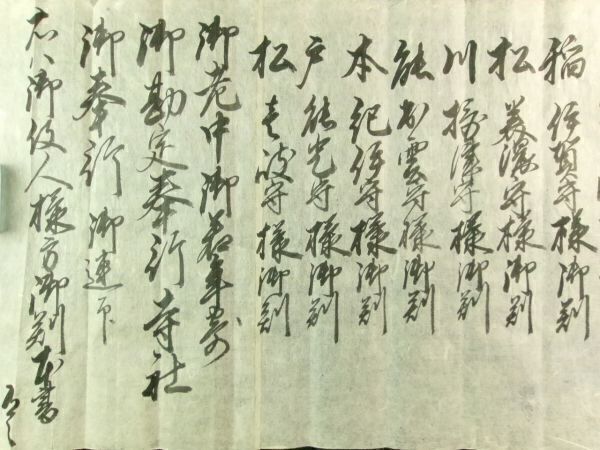 稲 伊賀守様御判
松 美濃守様御判
川 摂津守様御判
能 出雲守様御判
本 紀伊守様御判
戸 能光守様御判
松 壱岐守様御判
御老中御若年寄
御勘定奉行寺社
御奉行御連印
右ハ御役人様方御判本書
有之